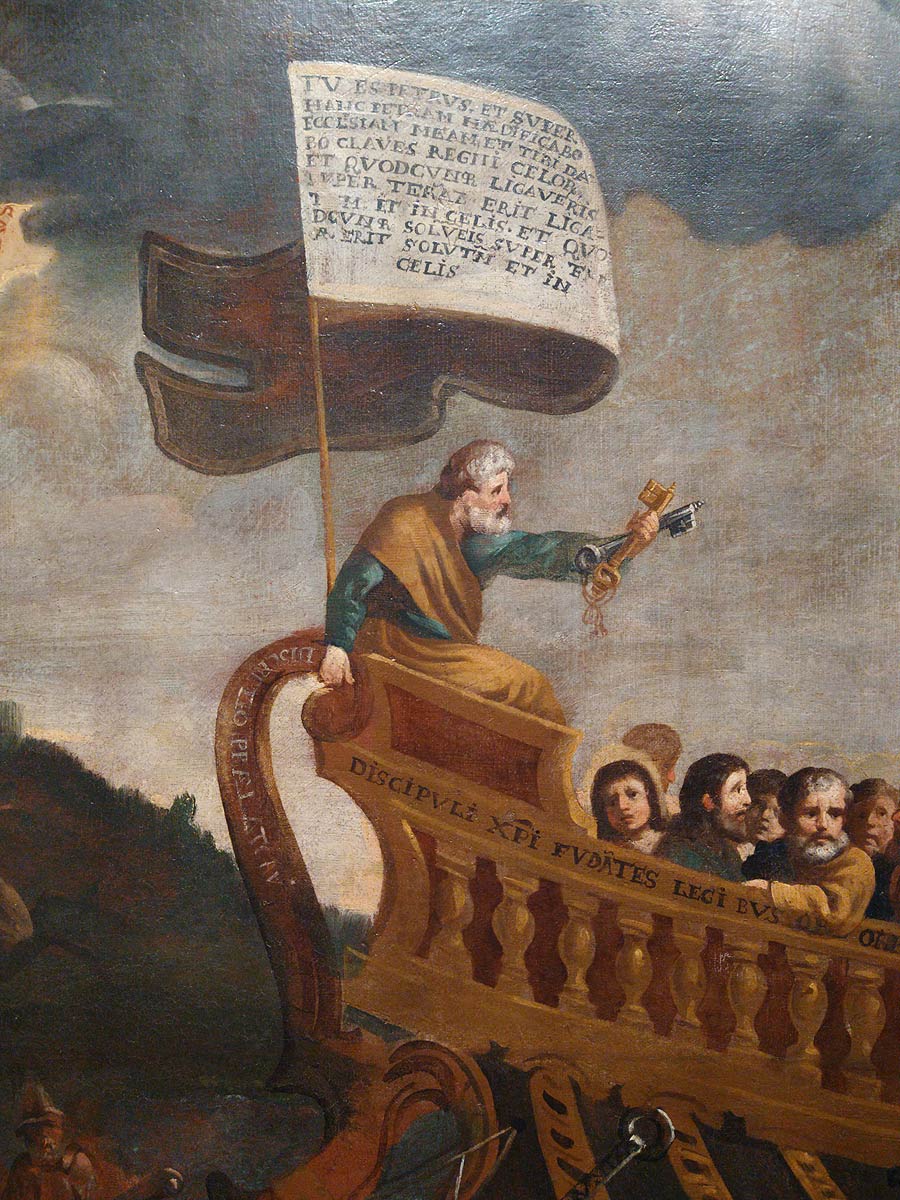 TV ES PETRVS ET SVPER
HANC PETRAM HÆDIFICABO
ECCLESIAM MEAM, ET TIBI DA
BO CLAVES REGNI CELORV
ET QVODCVNQ LIGAVERIS
SVPER TERAZ ERIT LIGA
T M ET IN CELIS. ET QVO
DCVNQ SOLVEIS SVPER TE
R. ERIT SOLVTM ET IN
CELIS
DISCIPVLI XPI FVDATES LEGIBVS